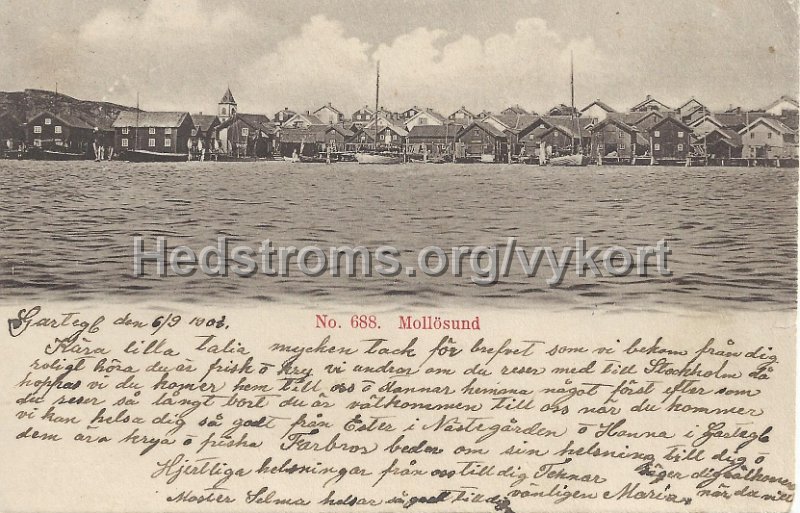 Hedstroms.org/vykort
No. 688. Mollösund
Gartegb den 6/9 1903.
Kära lilla talia mycken tack för brefvet som vi bekom från dig
roligt höra du är frisk o kry vi undrar om du reser med till Stockholm då
hoppas vi du komer hem till oss o stannar hemma något först efter som
du reser så långt bort du är välkommen till oss när du kommer
vi kan helsa dig så godt från Ester i Nästegården o Hanna i Gartegb
dem ära krya o friska Farbror beden om sin helsning till dig o
Hjertliga helsningar från oss till dig Teknar säger dig välkomen
Moster Selma helsar så godt till dig vänligen Maria när du vill